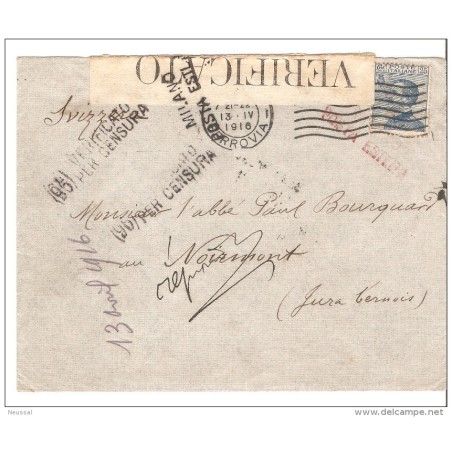 VERIFICATO
Svizzera
MILANO
POSTA EST.
13·IV
1916
FERROVIA
POSTA ESTERA
VERIFICATO
(90) PER CENSURA
(90) PER CENSURA
Monsieur l'abbé Paul Bourquard
au Noirmont
(Jura bernois)
13 avril 1916
Neussal
delcampe.net